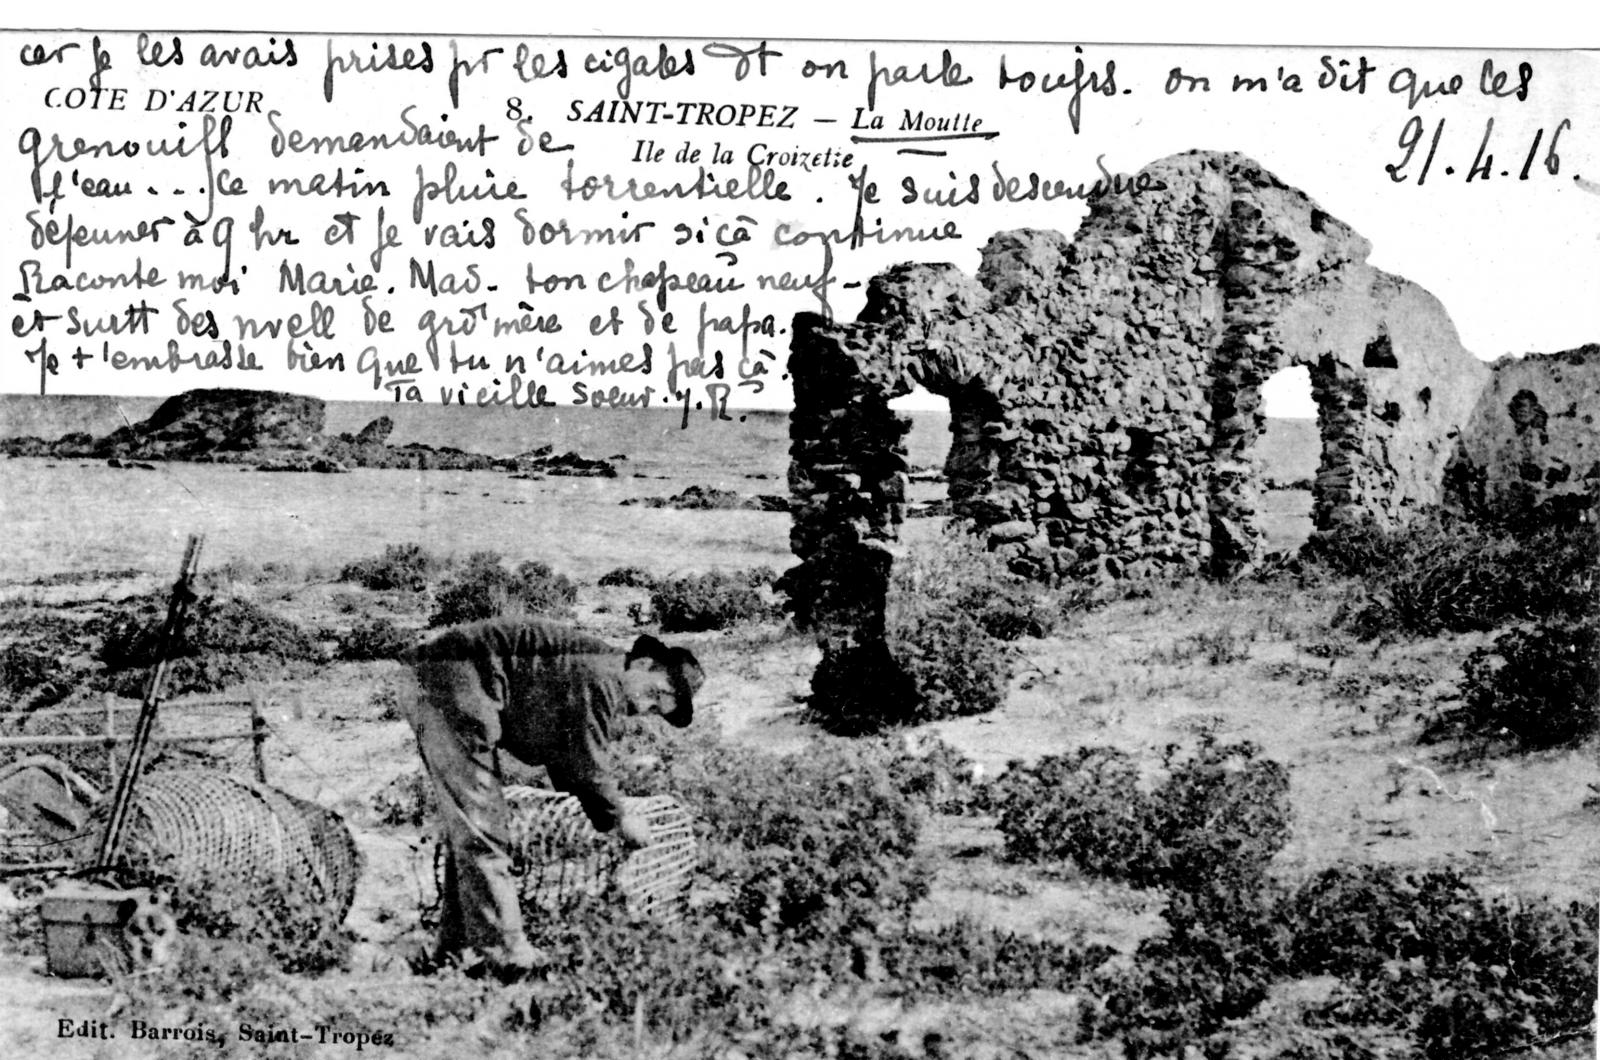 car je les avais prises pr les cigales et on parle toujrs. on m'a dit que les
COTE D'AZUR
8. SAINT-TROPEZ — La Moutte
Ile de la Croizetie
21.4.16.
grenouill demandaient de
l'eau... Ce matin pluie torrentielle. Je suis descendue
déjeuner à 9 hr et je vais dormir si çà continue
Raconte moi Marie. Mad. ton chapeau neuf-
et surtt des nvell de grd'mère et de papa.
Je t'embrasse bien que tu n'aimes pas çà.
Ta vieille soeur. Y. R.
Edit. Barrois, Saint-Tropez